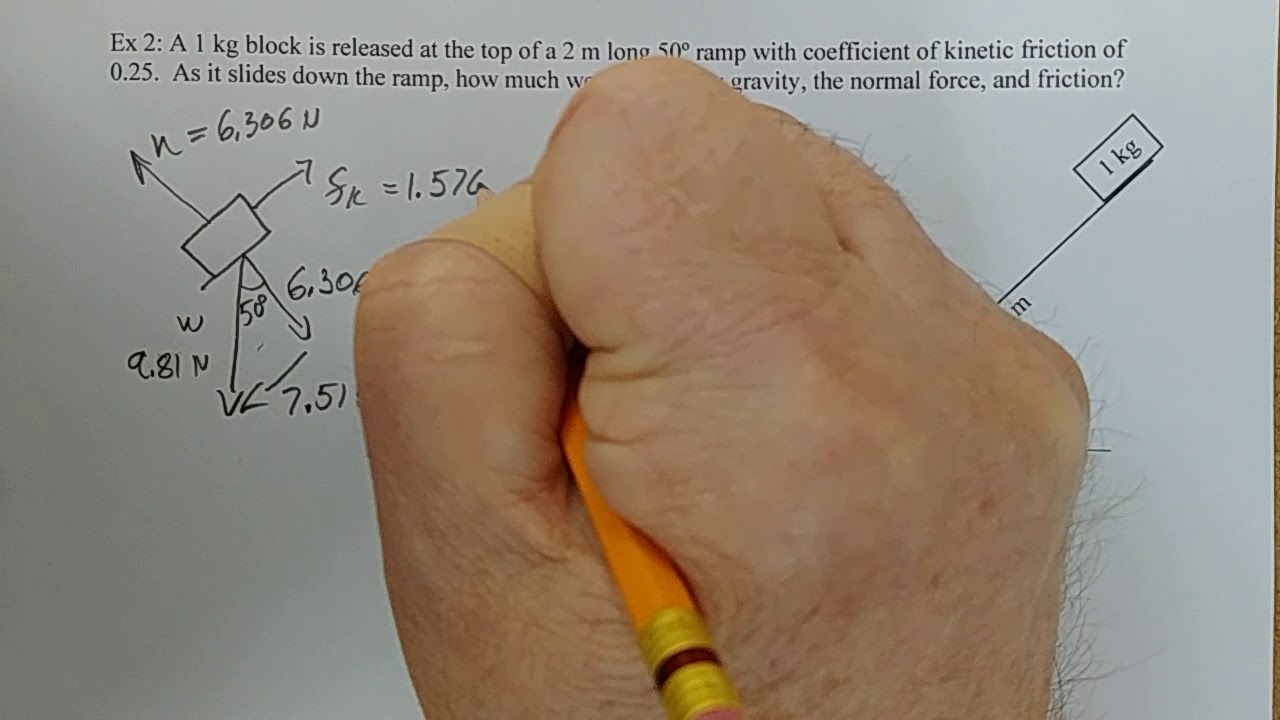 Ex 2: A 1 kg block is released at the top of a 2 m long 50º ramp with coefficient of kinetic friction of
0.25. As it slides down the ramp, how much gravity, the normal force, and friction?
n = 6.306 N
1 kg
fk = 1.576
6.306
50°
m
w
9.81 N
7.51